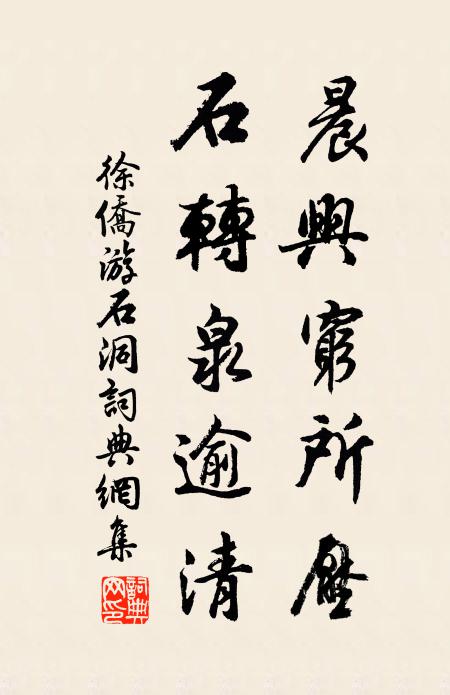 晨興窮所歷
石轉泉逾清
徐僑游石洞詞典網集
詞典网印